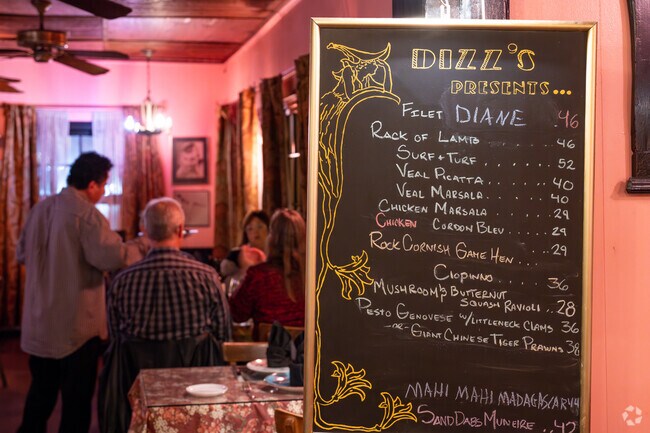 DIZZ'S
PRESENTS...
FILET DIANE .46
RACK OF LAMB ...... 46
SURF & TURF ....... 52
VEAL PICATTA ..... 40
VEAL MARSALA ..... 40
CHICKEN MARSALA .... 29
CHICKEN CORDON BLEU .. 29
ROCK CORNISH GAME HEN, ... 29
CIOPINNO .... 36
MUSHROOM & BUTTERNUT
SQUASH RAVIOLI .. 28
PESTO GENOVESE W/LITTLENECK CLAMS 36
-OR- GIANT CHINESE TIGER PRAWNS 38
MAHI MAHI MADAGASCAR 44
SAND DABS MUNEIRE .. 42